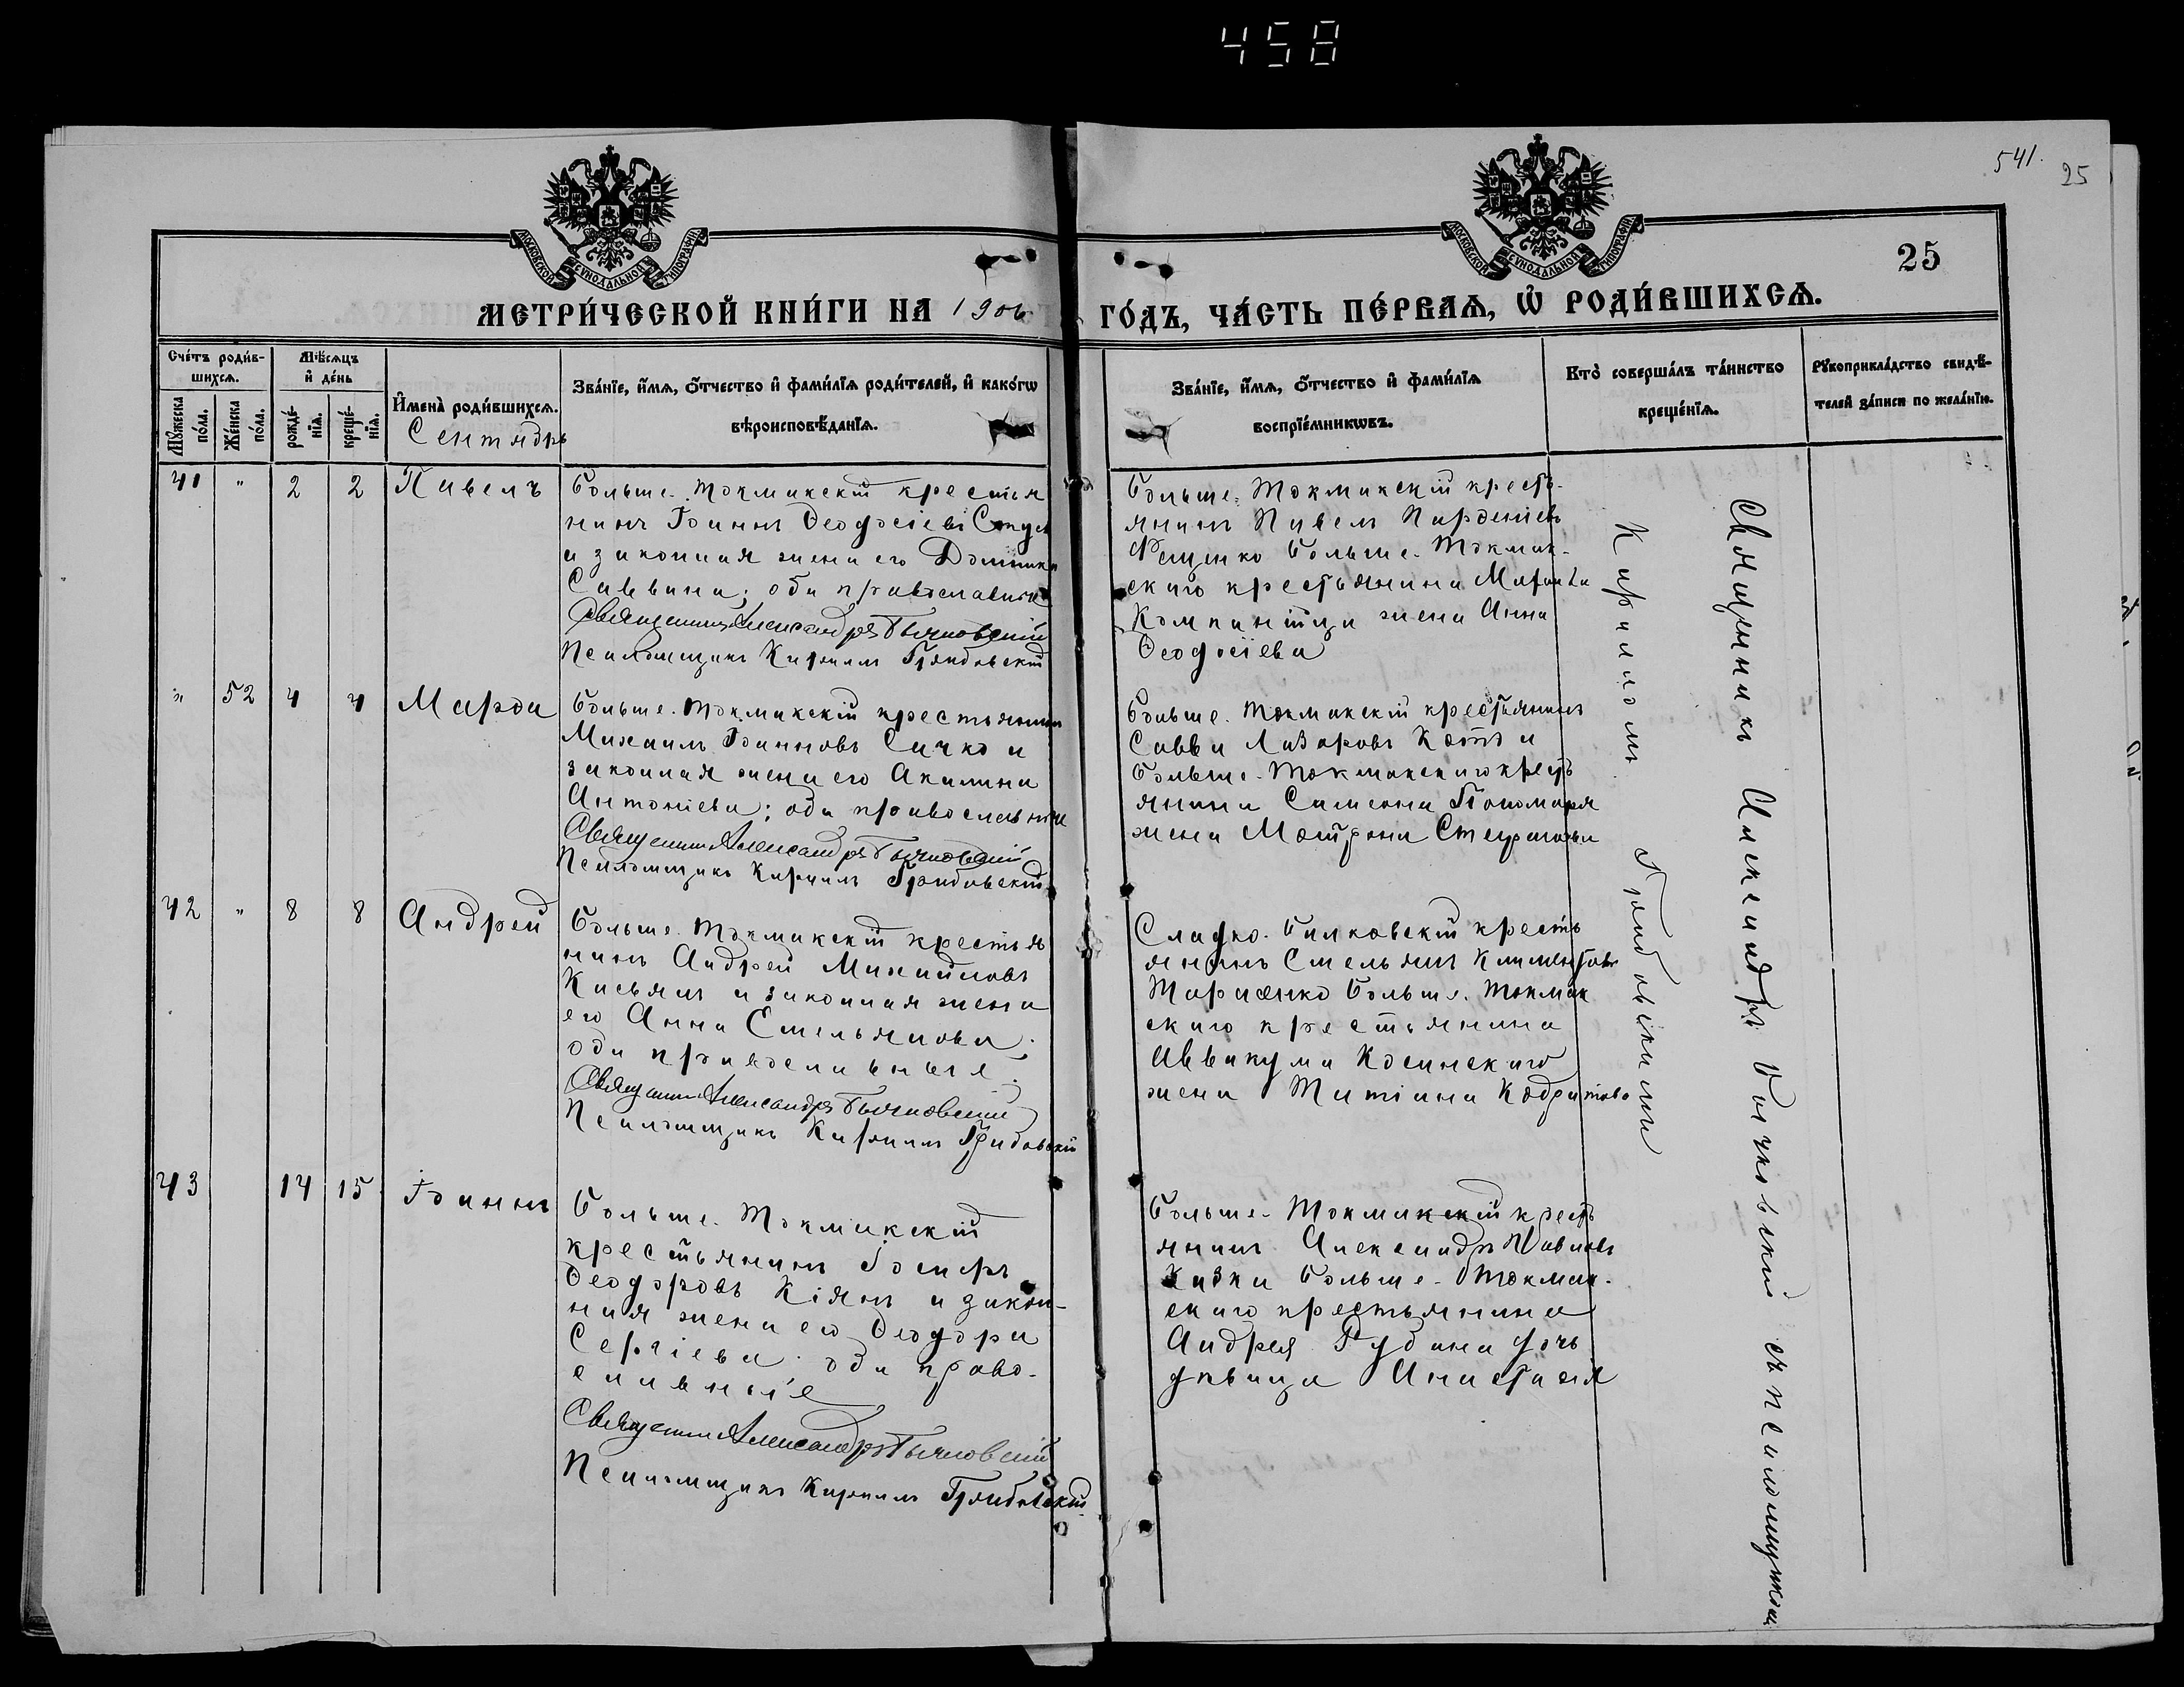 458
541.
25
МОСКОВСКОЙ СѴНОДАЛЬНОЙ ТИПОГРАФІИ
МОСКОВСКОЙ СѴНОДАЛЬНОЙ ТИПОГРАФІИ
25
МЕТРИ́ЧЕСКОЙ КНИ́ГИ НА 1906 ГО́ДЪ, ЧА́СТЬ ПЕ́РВАѦ, Ѡ҆ РОДИ́ВШИХСѦ.
Сче́тъ роди́в-
шихсѧ.
Мꙋ́жеска по́ла.
Же́нска по́ла.
Мѣ́сѧцъ
и҆ де́нь
рожде́-
нїѧ.
креще́-
нїѧ.
И҆мена̀ роди́вшихсѧ.
Сентябрь
Зва́нїе, и҆́мѧ, ѻ҆́тчество и҆ фами́лїѧ роди́телей, и҆ како́гѡ
вѣроисповѣ́данїѧ.
Зва́нїе, и҆́мѧ, ѻ҆́тчество и҆ фами́лїѧ
воспрїе́мникѡвъ.
Кто̀ соверша́лъ та́инство
креще́нїѧ.
Рꙋкоприкла́дство свидѣ́-
телей за́писи по жела́нїю.
41 " 2 2 Павелъ
Больше-Токмакскій крестья
нинъ Іоаннъ Ѳеодосіевъ
и законная жена его Домника
Саввина; оба православные
Священникъ Александръ Бычковскій
Псаломщикъ Кириллъ Грибовскій
Больше-Токмакскій кресть-
янинъ Павелъ Парѳеніевъ
Фещенко Больше-Токмак-
скаго крестьянина
жена Анна
Ѳеодосіева
" 52 4 4 Марѳа
Больше-Токмакскій крестьянинъ
Михаилъ Іоанновъ Сичко и
законная жена его Акилина
Антоніева; оба православные
Священникъ Александръ Бычковскій
Псаломщикъ Кириллъ Грибовскій
Больше-Токмакскій крестьянинъ
Савва Лазаровъ Котъ и
Больше-Токмакскаго кресть
янина Симеона Пономаря
жена Матрона Стефанова
42 " 8 8 Андрей
Больше-Токмакскій крестья
нинъ Андрей Михайловъ
Касьянъ и законная жена
его Анна Емельянова;
оба православные.
Священникъ Александръ Бычковскій
Псаломщикъ Кириллъ Грибовскій
Сладко-Балковскій кресть
янинъ Емельянъ Климентовъ
Тарасенко Больше-Токмак
скаго крестьянина
Аввакума Косинскаго
жена Татіана Кодратова
43 14 15 Іоаннъ
Больше-Токмакскій
крестьянинъ Іосифъ
Ѳеодоровъ Кіянъ и закон-
ная жена его Ѳеодора
Сергіева; оба право-
славные
Священникъ Александръ Бычковскій
Псаломщикъ Кириллъ Грибовскій
Больше-Токмакскій кресть
янинъ Александръ Павловъ
Больше-Токмак-
скаго крестьянина
Андрея Рудина дочь
дѣвица Анастасія
Священникъ Александръ Бычковскій съ псаломщикомъ
Кирилломъ Грибовскимъ